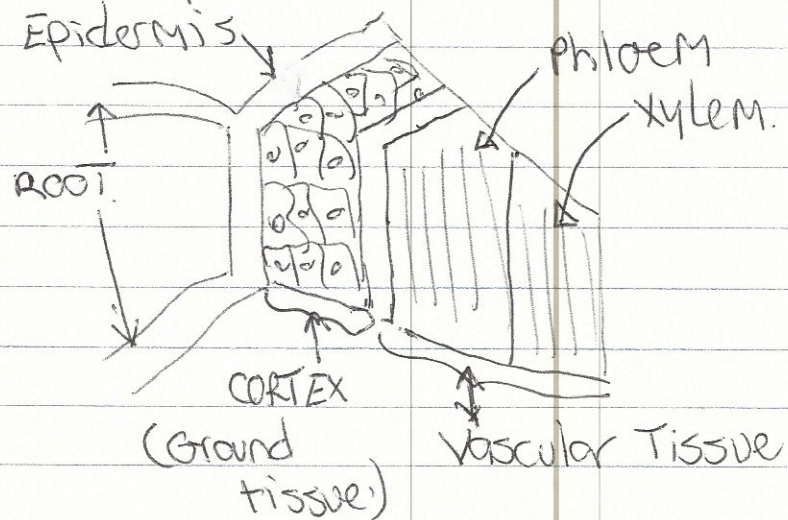 Epidermis
Phloem
Xylem.
ROOT.
CORTEX
(Ground
tissue)
Vascular Tissue